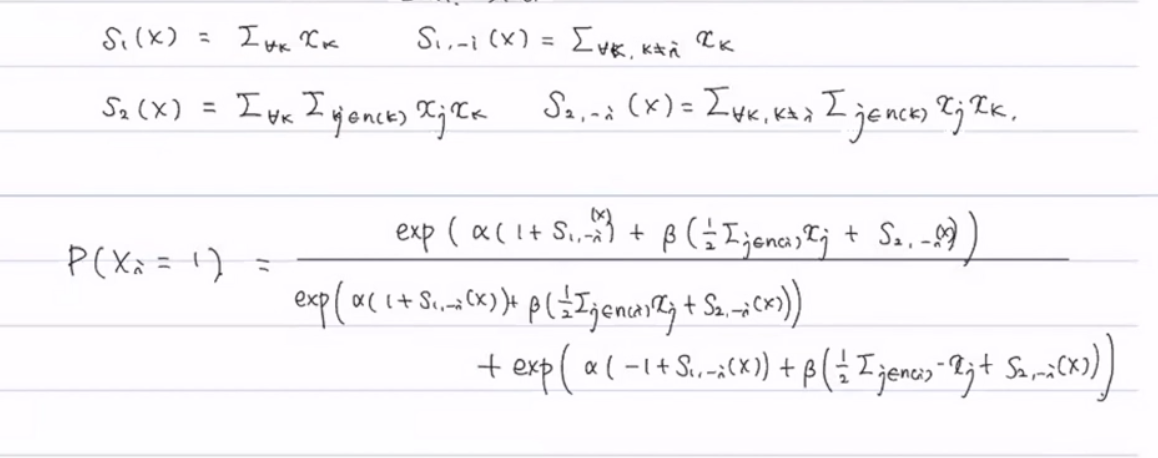 S₁(x) = Σ_{∀k} x_k    S_{1,-i}(x) = Σ_{∀k, k≠i} x_k
S₂(x) = Σ_{∀k} Σ_{j∈n(k)} x_j x_k    S_{2,-i}(x) = Σ_{∀k, k≠i} Σ_{j∈n(k)} x_j x_k.
exp ( α(1 + S_{1,-i}(x)) + β(½ Σ_{j∈n(i)} x_j + S_{2,-i}(x)) )
P(X_i = 1) =
exp( α(1 + S_{1,-i}(x)) + β(½ Σ_{j∈n(i)} x_j + S_{2,-i}(x)))
+ exp( α(-1 + S_{1,-i}(x)) + β(½ Σ_{j∈n(i)} -x_j + S_{2,-i}(x)))